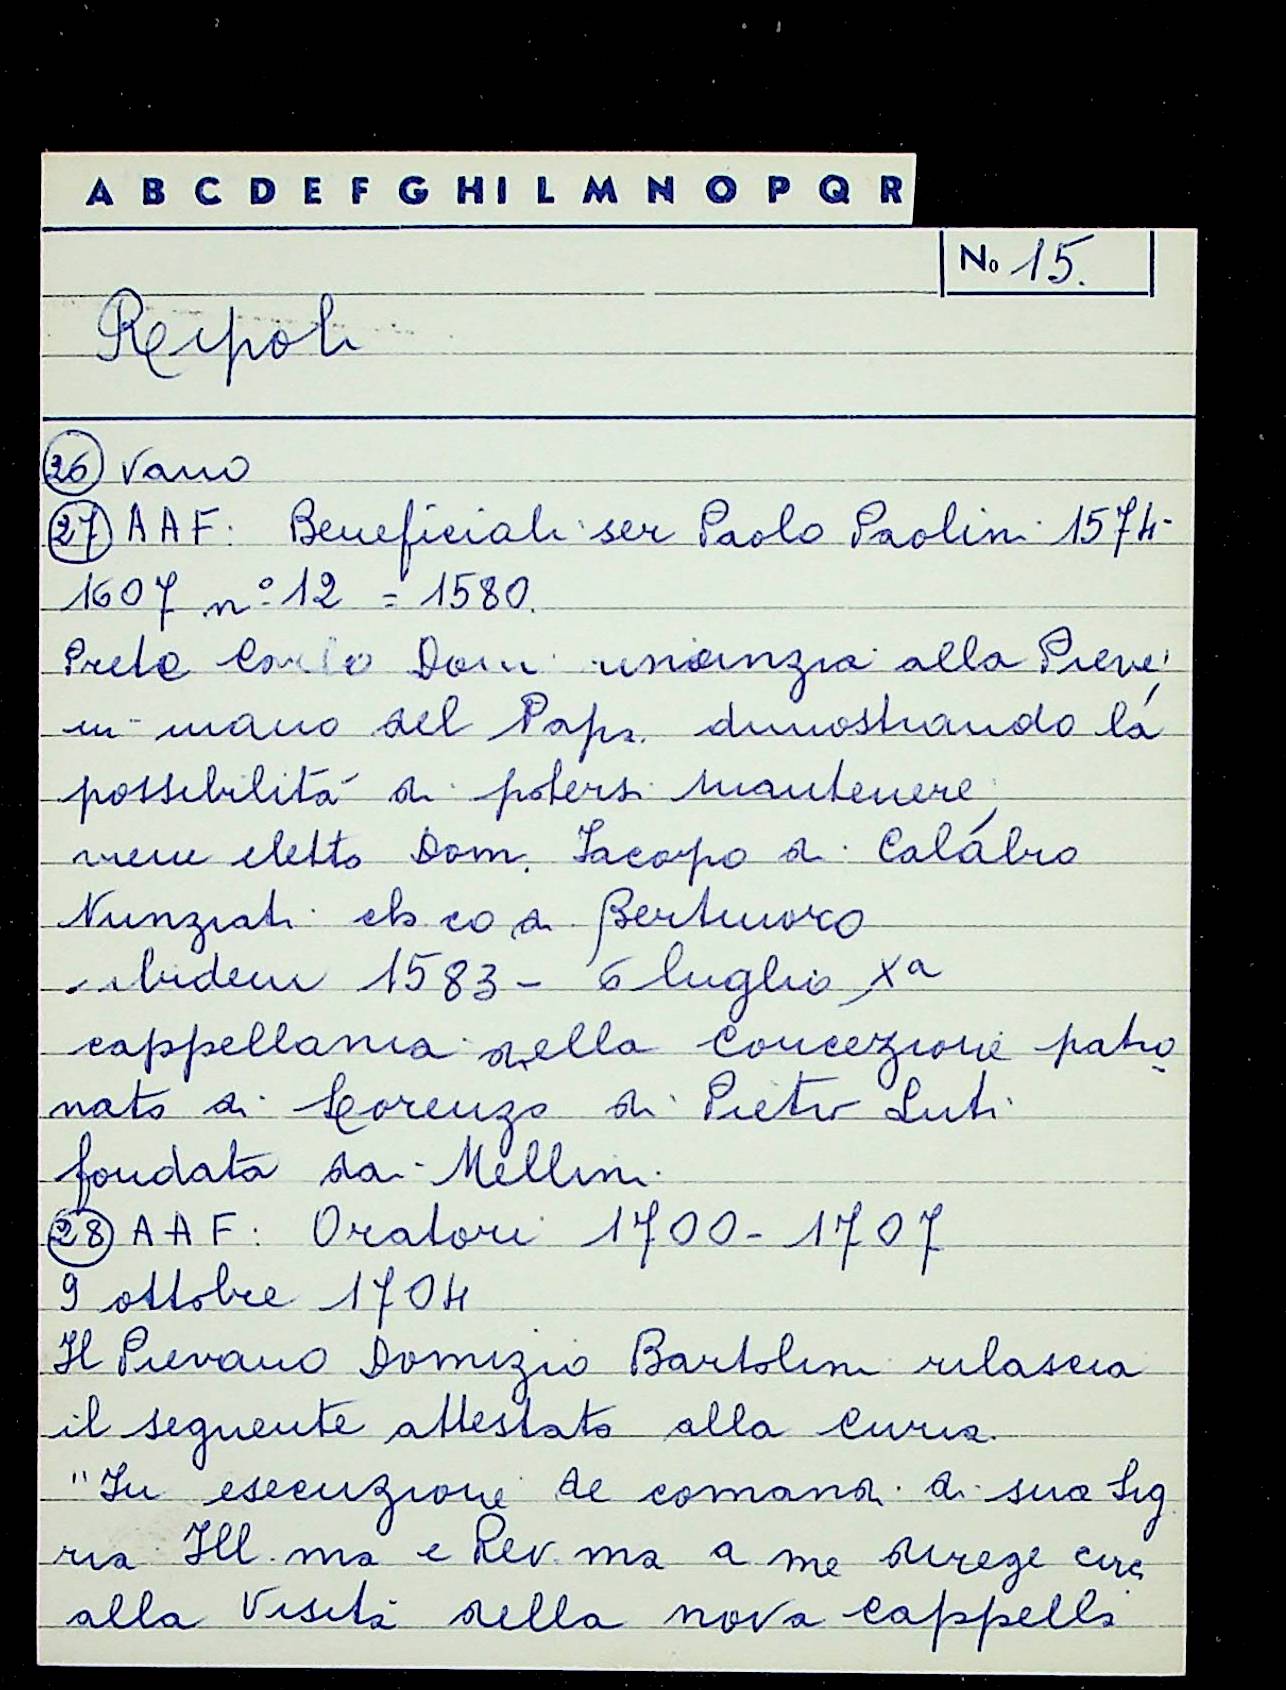 A B C D E F G H I L M N O P Q R
No 15.
Ripoli
26 vano
27 AAF: Beneficiali ser Paolo Paolini 1574-
1607 n° 12 = 1580.
Prete Carlo Doni rinunzia alla Pieve
in mano del Papa dimostrando la
possibilità di potersi mantenere,
viene eletto Dom. Iacopo di Calabro
Nunziati di Bertinoro
ibidem 1583 - 6 luglio Xa
cappellania della Concezione patro
nato di Lorenzo di Pietro Luti
fondata da Mellini
28 AAF: Oratori 1700-1707
9 ottobre 1704
Il Pievano Domizio Bartolini rilascia
il seguente attestato alla Curia.
"In esecuzione de comandi di sua Sig
ria Ill.ma e Rev.ma a me direge circ
alla Visita della nova cappella